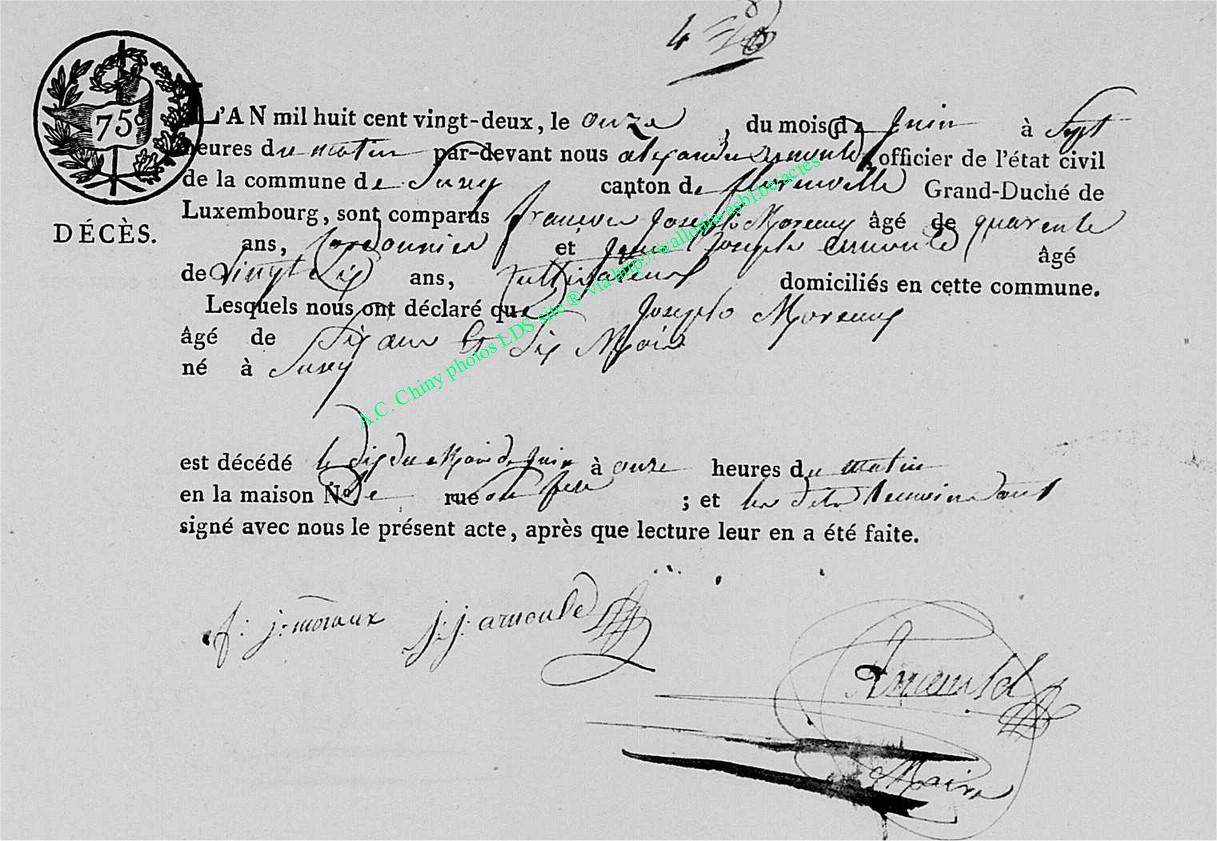 4
75c
L'AN mil huit cent vingt-deux, le onze, du mois de Juin à Sept
heures du matin par-devant nous alexandre arnould, officier de l'état civil
DÉCÈS.
de la commune de Suxy canton de florenville Grand-Duché de
Luxembourg, sont comparus francois Joseph Moreaux âgé de quarente
ans, Cordonnier et Jean Joseph arnould âgé
de vingt six ans, Cultivateurs domiciliés en cette commune.
Lesquels nous ont déclaré que Joseph Moreaux
âgé de Six ans et Six Mois
né à Suxy
est décédé le dix du Mois de Juin à onze heures du matin
en la maison No de rue du ; et les dits temoins ont
signé avec nous le présent acte, après que lecture leur en a été faite.
f: j: moraux j: j: arnould
Arnould
Maire
A.C. Chiny photos LDS site ® via http://wallonia-asbl.be/actes